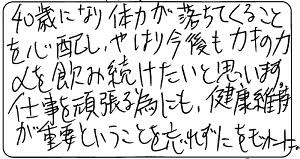 40歳になり体力が落ちてくること
を心配し、やはり今後も力村の力
αを飲み続けたいと思います。
仕事を頑張る為にも、健康維持
が重要ということを忘れずに